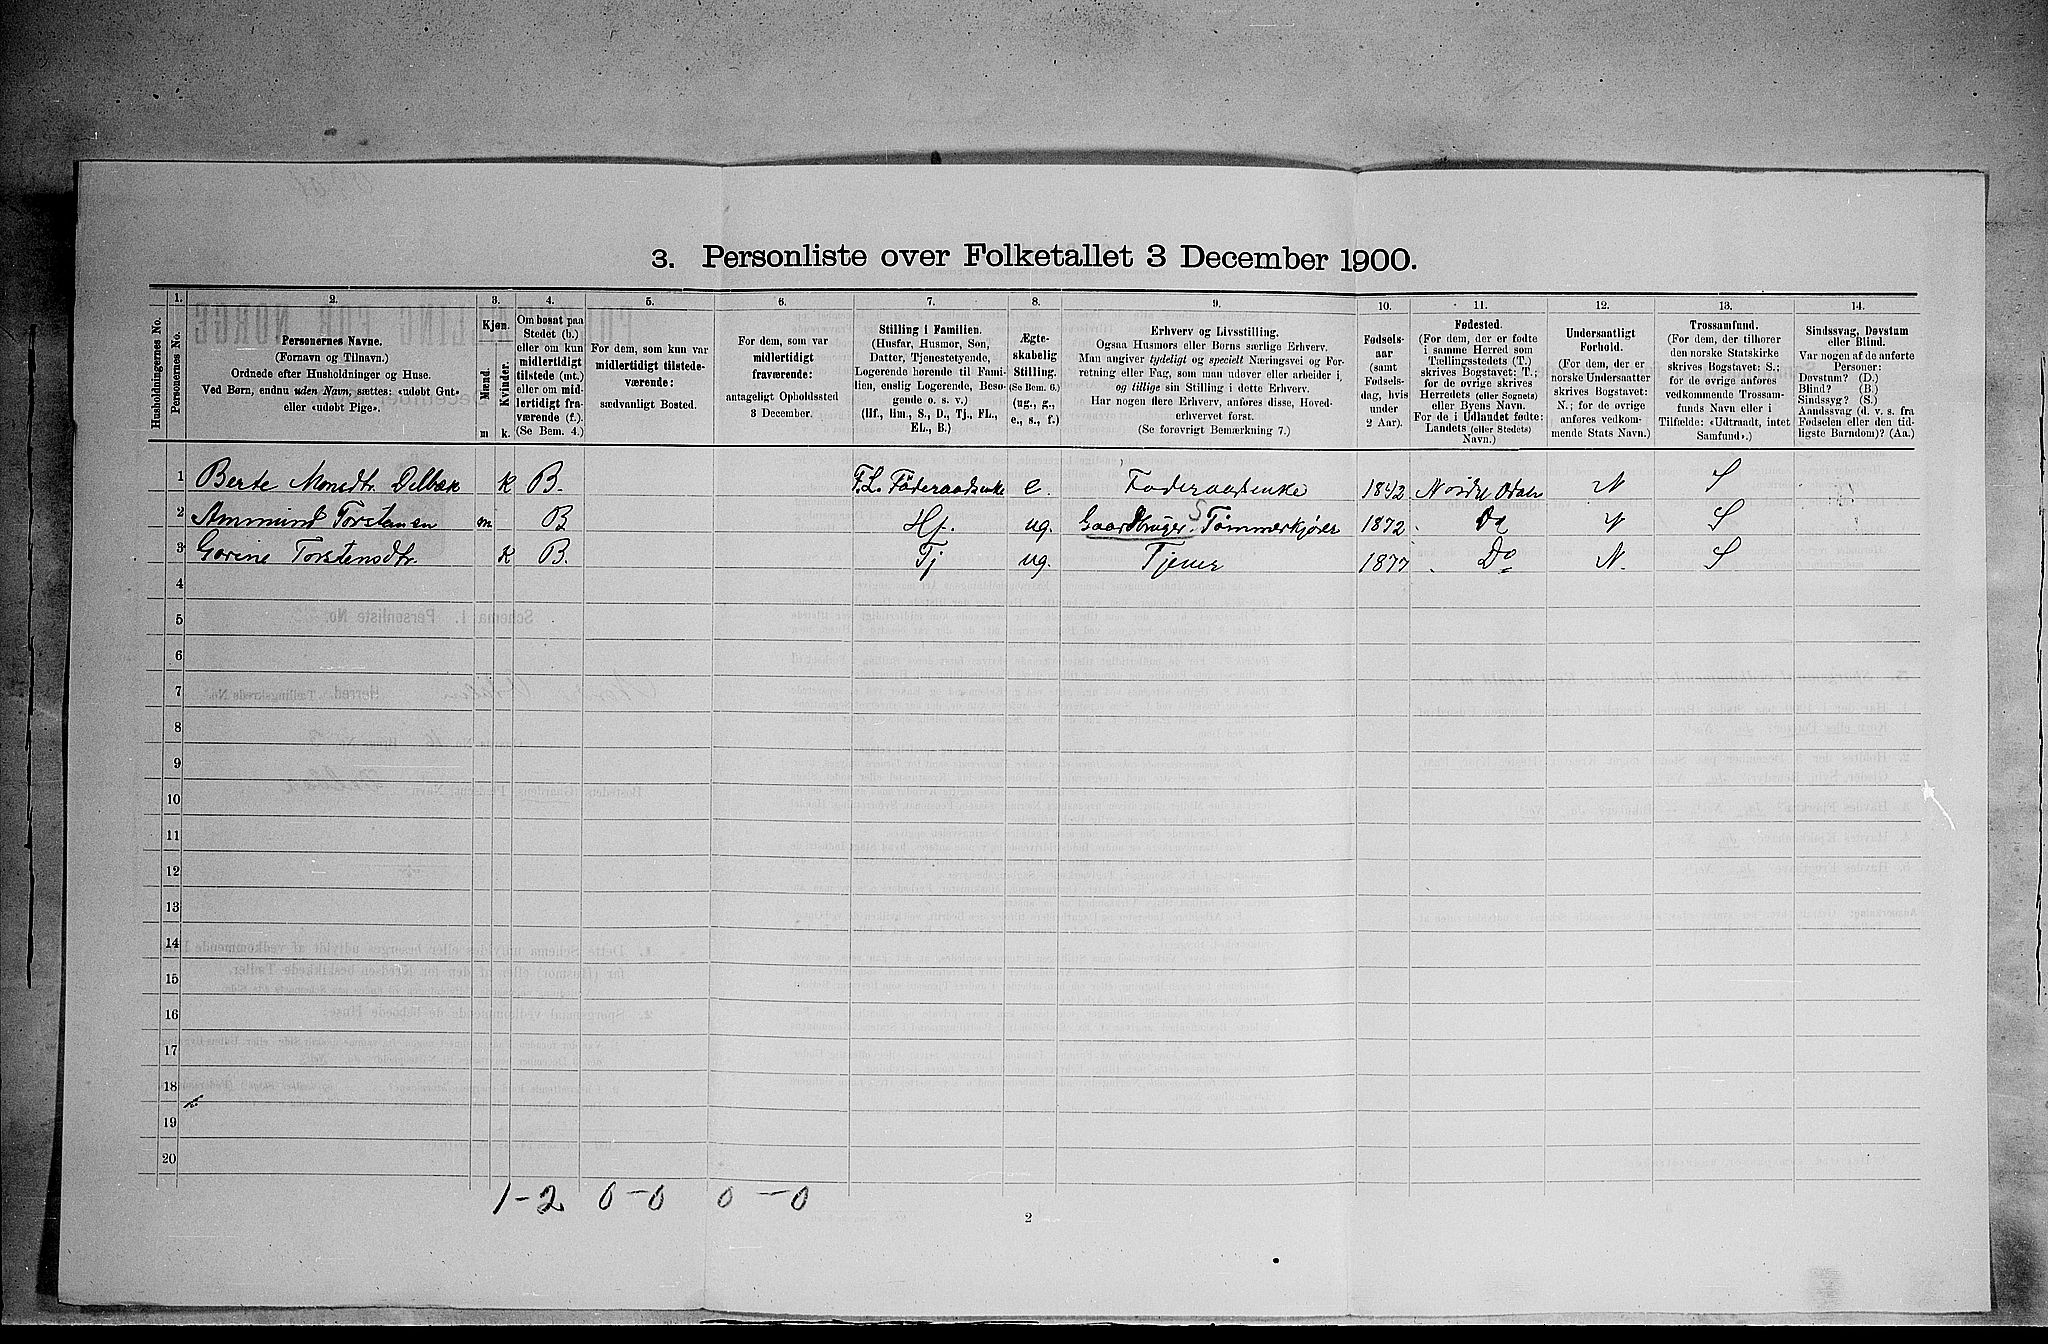 3. Personliste over Folketallet 3 December 1900.
1. 2. 3. 4. 5. 6. 7. 8. 9. 10. 11. 12. 13. 14.
Husholdningernes No.
Personernes No.
Personernes Navne.
(Fornavn og Tilnavn.)
Ordnede efter Husholdninger og Huse.
Ved Børn, endnu uden Navn, sættes: «udøbt Gut»
eller «udøbt Pige».
Kjøn.
Mænd.
Kvinder.
m k.
Om bosat paa
Stedet (b.)
eller om kun
midlertidigt
tilstede (mt.)
eller om mid-
lertidigt fra-
værende (f.).
(Se Bem. 4.)
For dem, som kun var
midlertidigt tilstede-
værende:
sædvanligt Bosted.
For dem, som var
midlertidigt
fraværende:
antageligt Opholdssted
3 December.
Stilling i Familien.
(Husfar, Husmor, Søn,
Datter, Tjenestetyende,
Logerende hørende til Fami-
lien, enslig Logerende, Besø-
gende o. s. v.)
(Hf., hm., S., D., Tj., FL.,
EL., B.)
Ægte-
skabelig
Stilling.
(Se Bem. 6.)
(ug., g.,
e., s., f.)
Erhverv og Livsstilling.
Ogsaa Husmors eller Børns særlige Erhverv.
Man angiver tydeligt og specielt Næringsvei og For-
retning eller Fag, som man udøver eller arbeider i,
og tillige sin Stilling i dette Erhverv.
Har nogen flere Erhverv, angives disse, Hoved-
erhvervet først.
(Se forøvrigt Bemærkning 7.)
Fødsels-
aar
(samt
Fødsels-
dag, hvis
under
2 Aar).
Fødested.
(For dem, der er fødte
i samme Herred som
Tællingsstedets (T.)
skrives Bogstavet: T.;
for de øvrige skrives
Herredets (eller Sognets)
eller Byens Navn.
For de i Udlandet fødte:
Landets (eller Stedets)
Navn.)
Undersaatligt
Forhold.
(For dem, der er
norske Undersaatter
skrives Bogstavet:
N.; for de øvrige
anføres vedkom-
mende Stats Navn.)
Trossamfund.
(For dem, der tilhører
den norske Statskirke
skrives Bogstavet: S.;
for de øvrige anføres
vedkommende Trossam-
funds Navn eller i
Tilfælde: «Udtraadt, intet
Samfund».)
Sindssvag, Døvstum
eller Blind.
Var nogen af de anførte
Personer:
Døvstum? (D.)
Blind? (B.)
Sindssyg? (S.)
Aandssvag (d. v. s. fra
Fødselen eller den tid-
ligste Barndom)? (Aa.)
1 Berte Monsdtr. Delbæk k B. F.L. Föderaadsenke e. Föderaadsenke 1842 Nordre Odalen N S
2 Ammund Torstensen m. B Hf. ug. Gaardbruger S Tömmerkjörer 1872 Do N S
3 Gorine Torstensdtr. k B. Tj ug. Tjener 1877 Do N. S
4
5
6
7
8
9
10
11
12
13
14
15
16
17
18
19
20
1 - 2 0 - 0 0 - 0
2